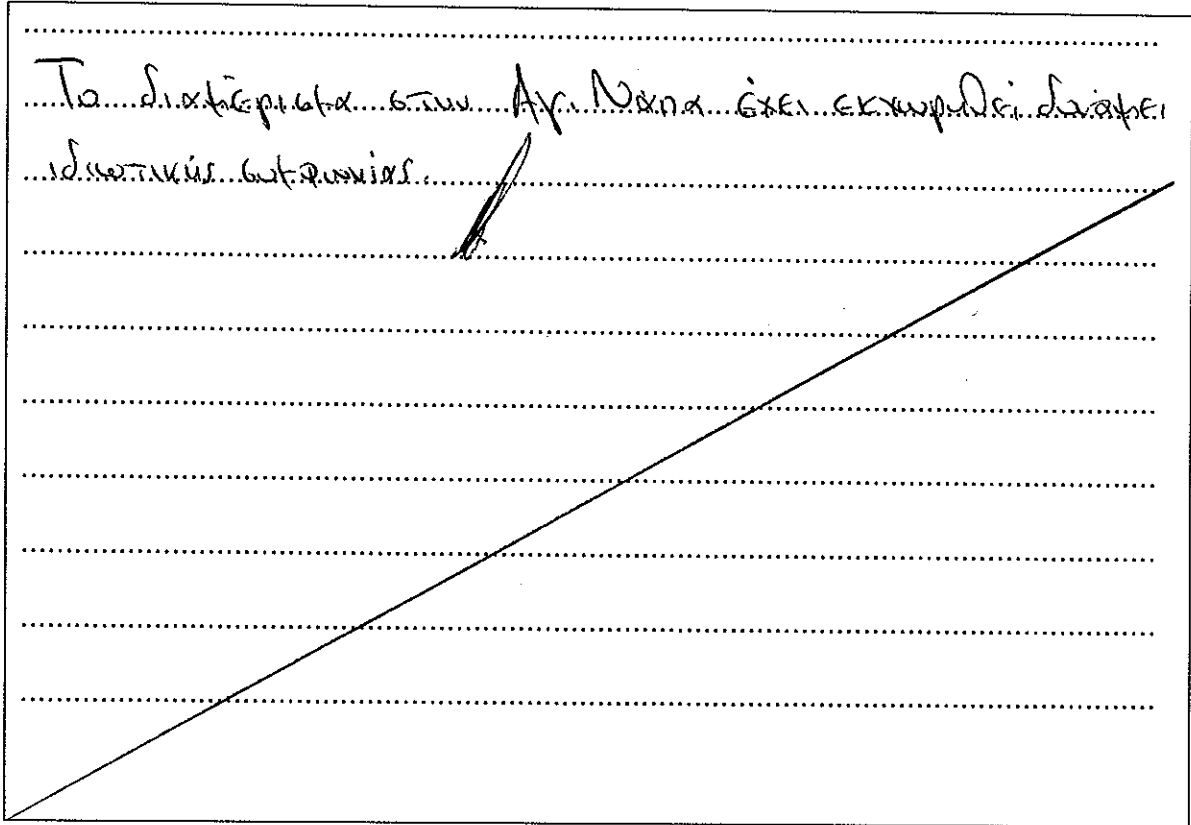 Το διαμέρισμα στην Αγ. Νάπα έχει εκχωρηθεί δυνάμει
ιδιωτικής συμφωνίας.